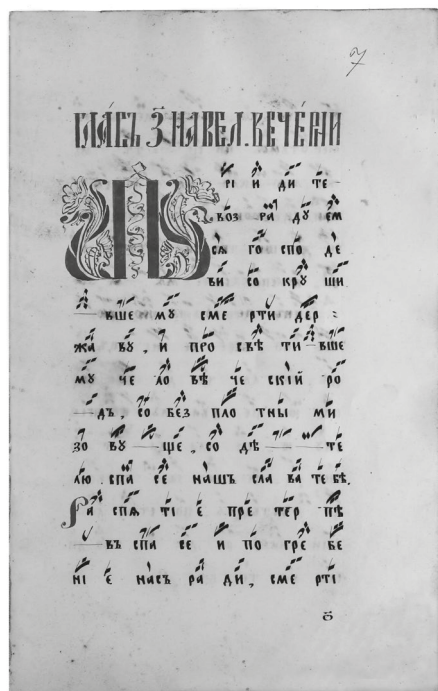 7
гла́съ з҃ на вел. вече́рни
Прі и ди те
воз ра ду ем
ся го спо де
ви со кру ши
вше му сме рти дер
жа ву, и про свѣ ти вше
му че ло вѣ че скїй ро
дъ, со без пло тны ми
зо ву ще, со дѣ те
лю спа се нашъ сла ва те бѣ.
Ра спя ті е пре тер пѣ
въ спа се и по гре бе
ні е насъ ра ди, сме рті